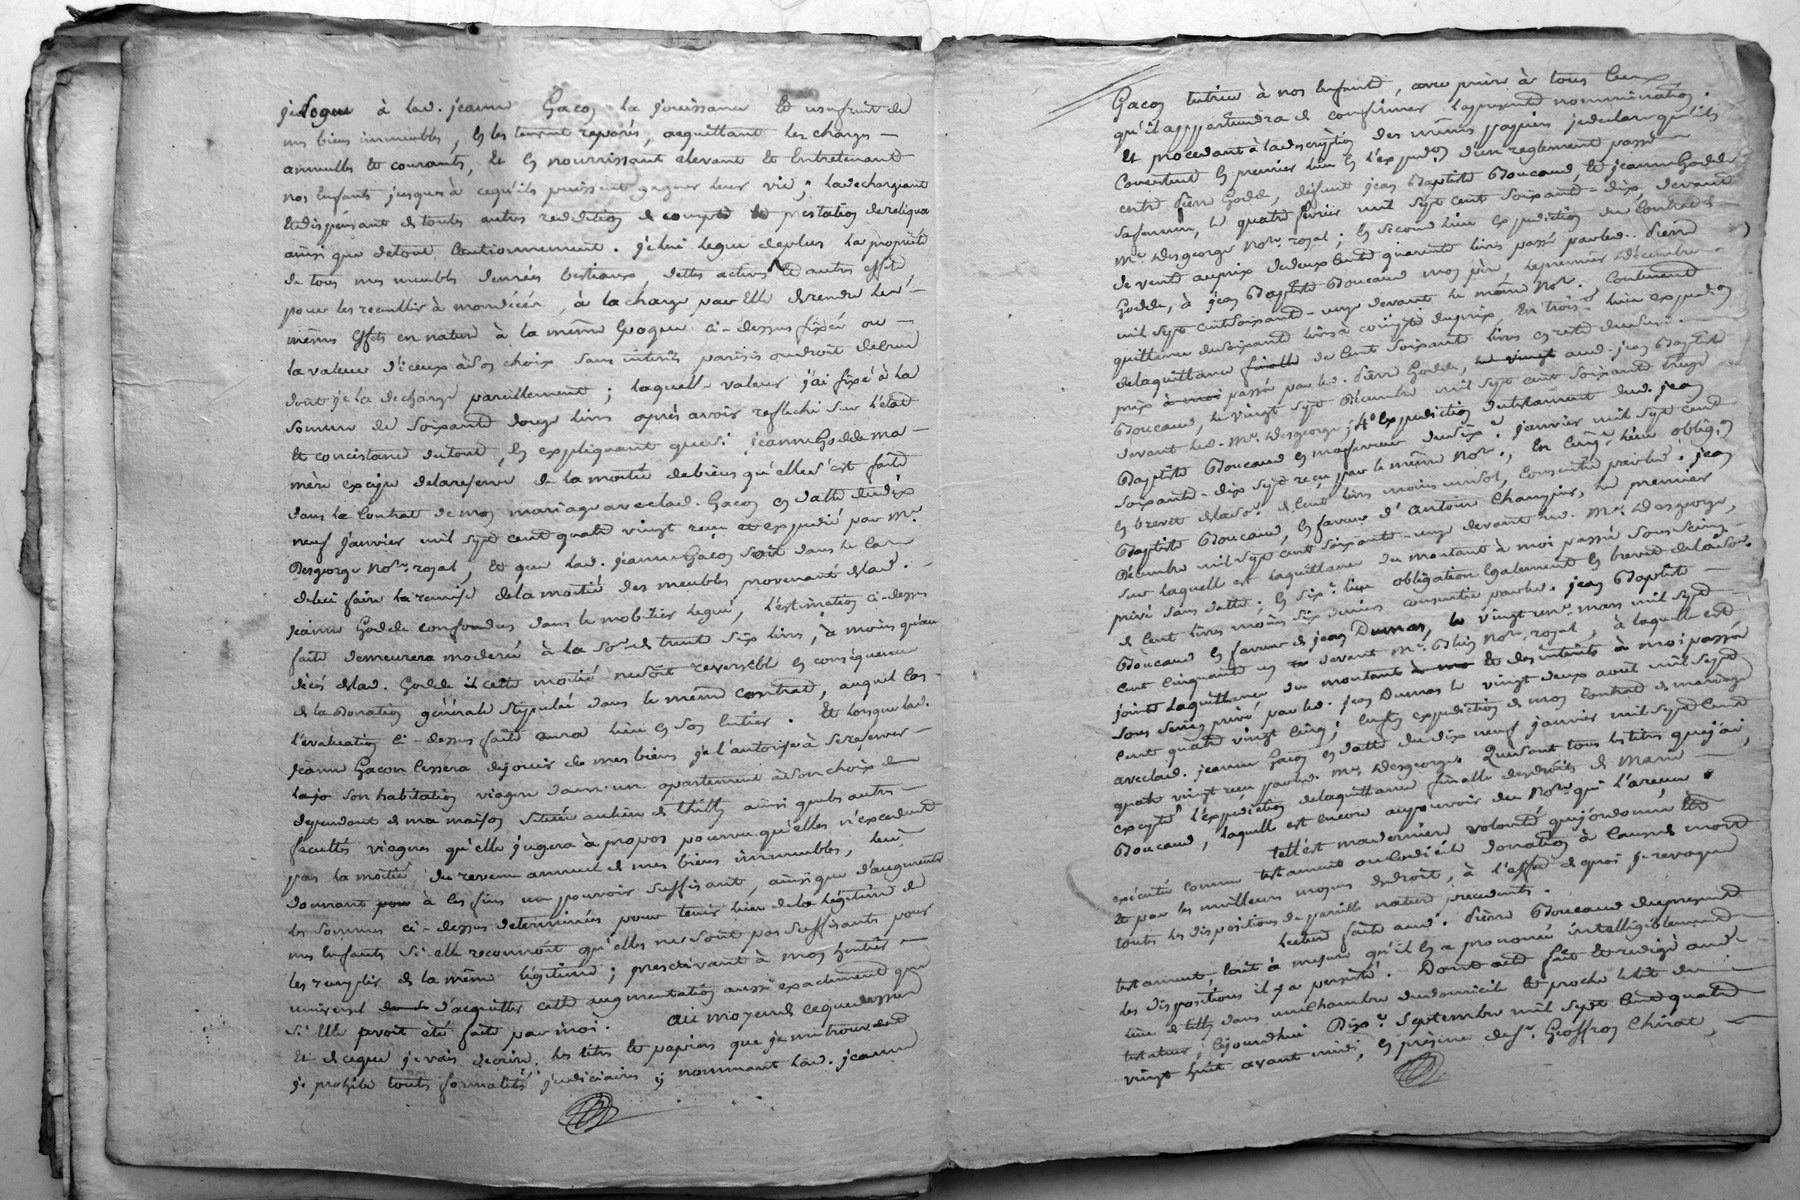 je legue à lad. jeanne Gacon la jouissance et usufruit de
mes biens immeubles, en les tenant reparés, acquittant les charges
annuelles et courants, et en nourrissant elevant et Entretenant
nos Enfants jusques à cequ'ils puissent gagner leur vie; ladechargeant
Etdispensant de toutes autres reddition de compte et prestation dereliqua
ainsi que detout Cautionnement. je lui legue deplus la propriété
de tous mes meubles denrées bestiaux dettes actives et autres effets,
pour les recueillir à mondecés, à la charge par Elle derendre les
mêmes effets en nature à la même Epoque ci-dessus fixée ou
la valeur d'iceux àson choix sans interêts parisis oudroit decrue
dont je la decharge pareillement; laquelle valeur j'ai fixé à la
somme de soixante douze livres après avoir reflechi sur l'état
et consistance dutout, en expliquant que si jeanne Godde ma
mère excipe delareserve de la moitié debiens qu'elle s'est faite
dans le Contrat de mon mariage aveclad. Gacon en datte dudix
neuf janvier mil sept cent quatre vingt recu et expedié par Me
Desgeorge Nore royal, et que lad. jeanne Gacon soit dans le cas
delui faire la remise dela moitié des meubles provenants delad.
jeanne Godde confondus dans le mobilier legué, l'estimation ci-dessus
faite demeurera moderée à la so.e de trente six livres, à moins qu'au
décés delad. Godde cette moitié nesoit reversible en conséquence
de la donation générale stipulée dans le même contrat, auquel cas
l'evaluation ci-dessus faite aura lieu en son Entier. Et lorsque lad.
jeanne Gacon Cessera dejouir de mes biens je l'autorise à sereserver
son habitation viagere dans un apartement àson choix
dependant de ma maison située aulieu de thilly ainsi queles autres
facultés viageres qu'elle jugera à propos pourvu qu'elles n'excedent
pas la moitié du revenu annuel de mes biens immeubles, lui
donnant à ces fins un pouvoir suffisant, ainsique d'augmenter
les sommes ci-dessus determinées pour tenir lieu de la légitime de
mes Enfants si elle reconnoit qu'elles ne sont pas suffisants pour
les remplir de la même légitime; prescrivant à mon heritier
universel d'acquitter cette augmentation aussi exactement que
si Elle avoit été faite par moi. au moyende cequedessus
Et de ceque je vais decrire les titres et papiers que je me trouve
je prohibe toute formalités judiciaires; nommant lad. jeanne
Gacon tutrice à nos Enfants, avec prière à tous Ceux
qu'il appartiendra de confirmer lapresente nommination.
Et procedant à ladescription des mêmes papiers jedeclare qu'ils
Consistent en premier lieu en l'expedon d'un reglement passé
entre Pierre Godde, défunt jean Baptiste Boucaud, et jeanne Godde
safemme, le quatre fevrier mil sept cent soixante-dix, devant
Me Desgeorge Nore royal; en second lieu expedition du Contrat
de vente auprix dedeux Cents quarente livres passé parled. Pierre
Godde, à jean Baptiste Boucaud mon père, lepremier Décembre
mil sept centsoixante-onze devant le même Nore. Contenant
quittance desoixante livres à compte duprix, En trois.e lieu expedion
delaquittance finalle de Cent soixante livres en reste dudit
prix passée parled. Pierre Godde, aud. jean Baptiste
Boucaud, le vingt sept Décembre mil sept cent soixante treize
devant led. Me. Desgeorge; 4° Expedition dutestament dud. jean
Baptiste Boucaud en mafaveur dusix.e janvier mil sept cent
soixante-dix sept reçu par le même Nore; En cinq.e lieu obligon
en brevet delaso.e de Cent livres moins unsol, Consentie parled. jean
Baptiste Boucaud, en faveur d'Antoine Champier, le premier
Décembre mil sept cent soixante-onze devant led. Me. Desgeorge,
sur laquelle est laquittance du montant à moi passée sousSeing
privé sans datte; en six.e lieu obligation Egalement en brevet delaso.e
de Cent livres moins six deniers consentie parled. jean Baptiste
Boucaud en faveur de jean Dumas, le vingt un.e mars mil sept
cent Cinquante devant Me. Nore royal, à laquelle est
jointe laquittance du montant et des interêts à moi passée
sous seing privé parled. jean Dumas le vingt deux avril mil sept
Cent quatre vingt Cinq; Enfin expedition de mon Contrat de mariage
aveclad. jeanne Gacon en datte du dix neuf janvier mil sept Cent
quatre vingt reçu parled. Me. Desgeorge. Quesont tous les titres quej'ai,
excepté l'expedition delaquittance finalle desdroits de Marie
Boucaud, laquelle est encore aupouvoir du Nore qui l'a reçue.
telle est maderniere volonté quej'ordonne être
exécutée comme testament oudonation à Cause de mort
et par les meilleurs moyens dedroit, à l'effet de quoi je revoque
toutes les dispositions de pareille nature precedents.
Lecture faite aud. Pierre Boucaud dupresent
testament, tout à mesure qu'il l'a prononcé intelligiblement
les dispositions il y a persisté. Dont acte fait et redigé aud.
lieu de tilly dans unechambre dudomicile et proche le lit du
testateur, cejourdhui Dix.e Septembre mil sept Cent quatre
vingt huit avant midi, en présence de sr. Geoffroy Chirat,